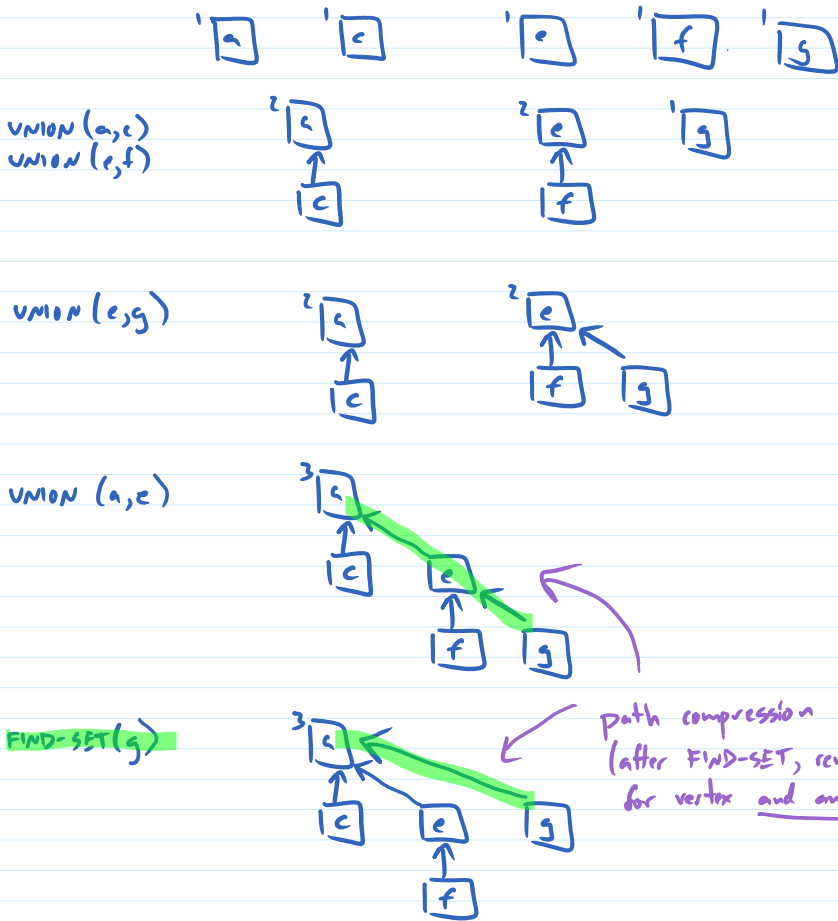 1 a 1 c 1 e 1 f 1 g
UNION (a,c) 2 a 2 e 1 g
UNION (e,f)
c f
UNION (e,g) 2 a 2 e
c f g
UNION (a,e) 3 a
c e
f g
FIND-SET(g) 3 a path compression
(after FIND-SET, re
c e g for vertex and
f